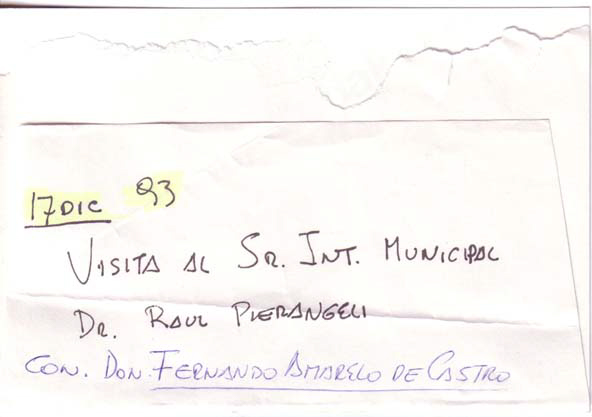 17 DIC 93
VISITA AL SR. INT. MUNICIPAL
DR. RAUL PIERANGELI
CON. DON. FERNANDO AMARELO DE CASTRO